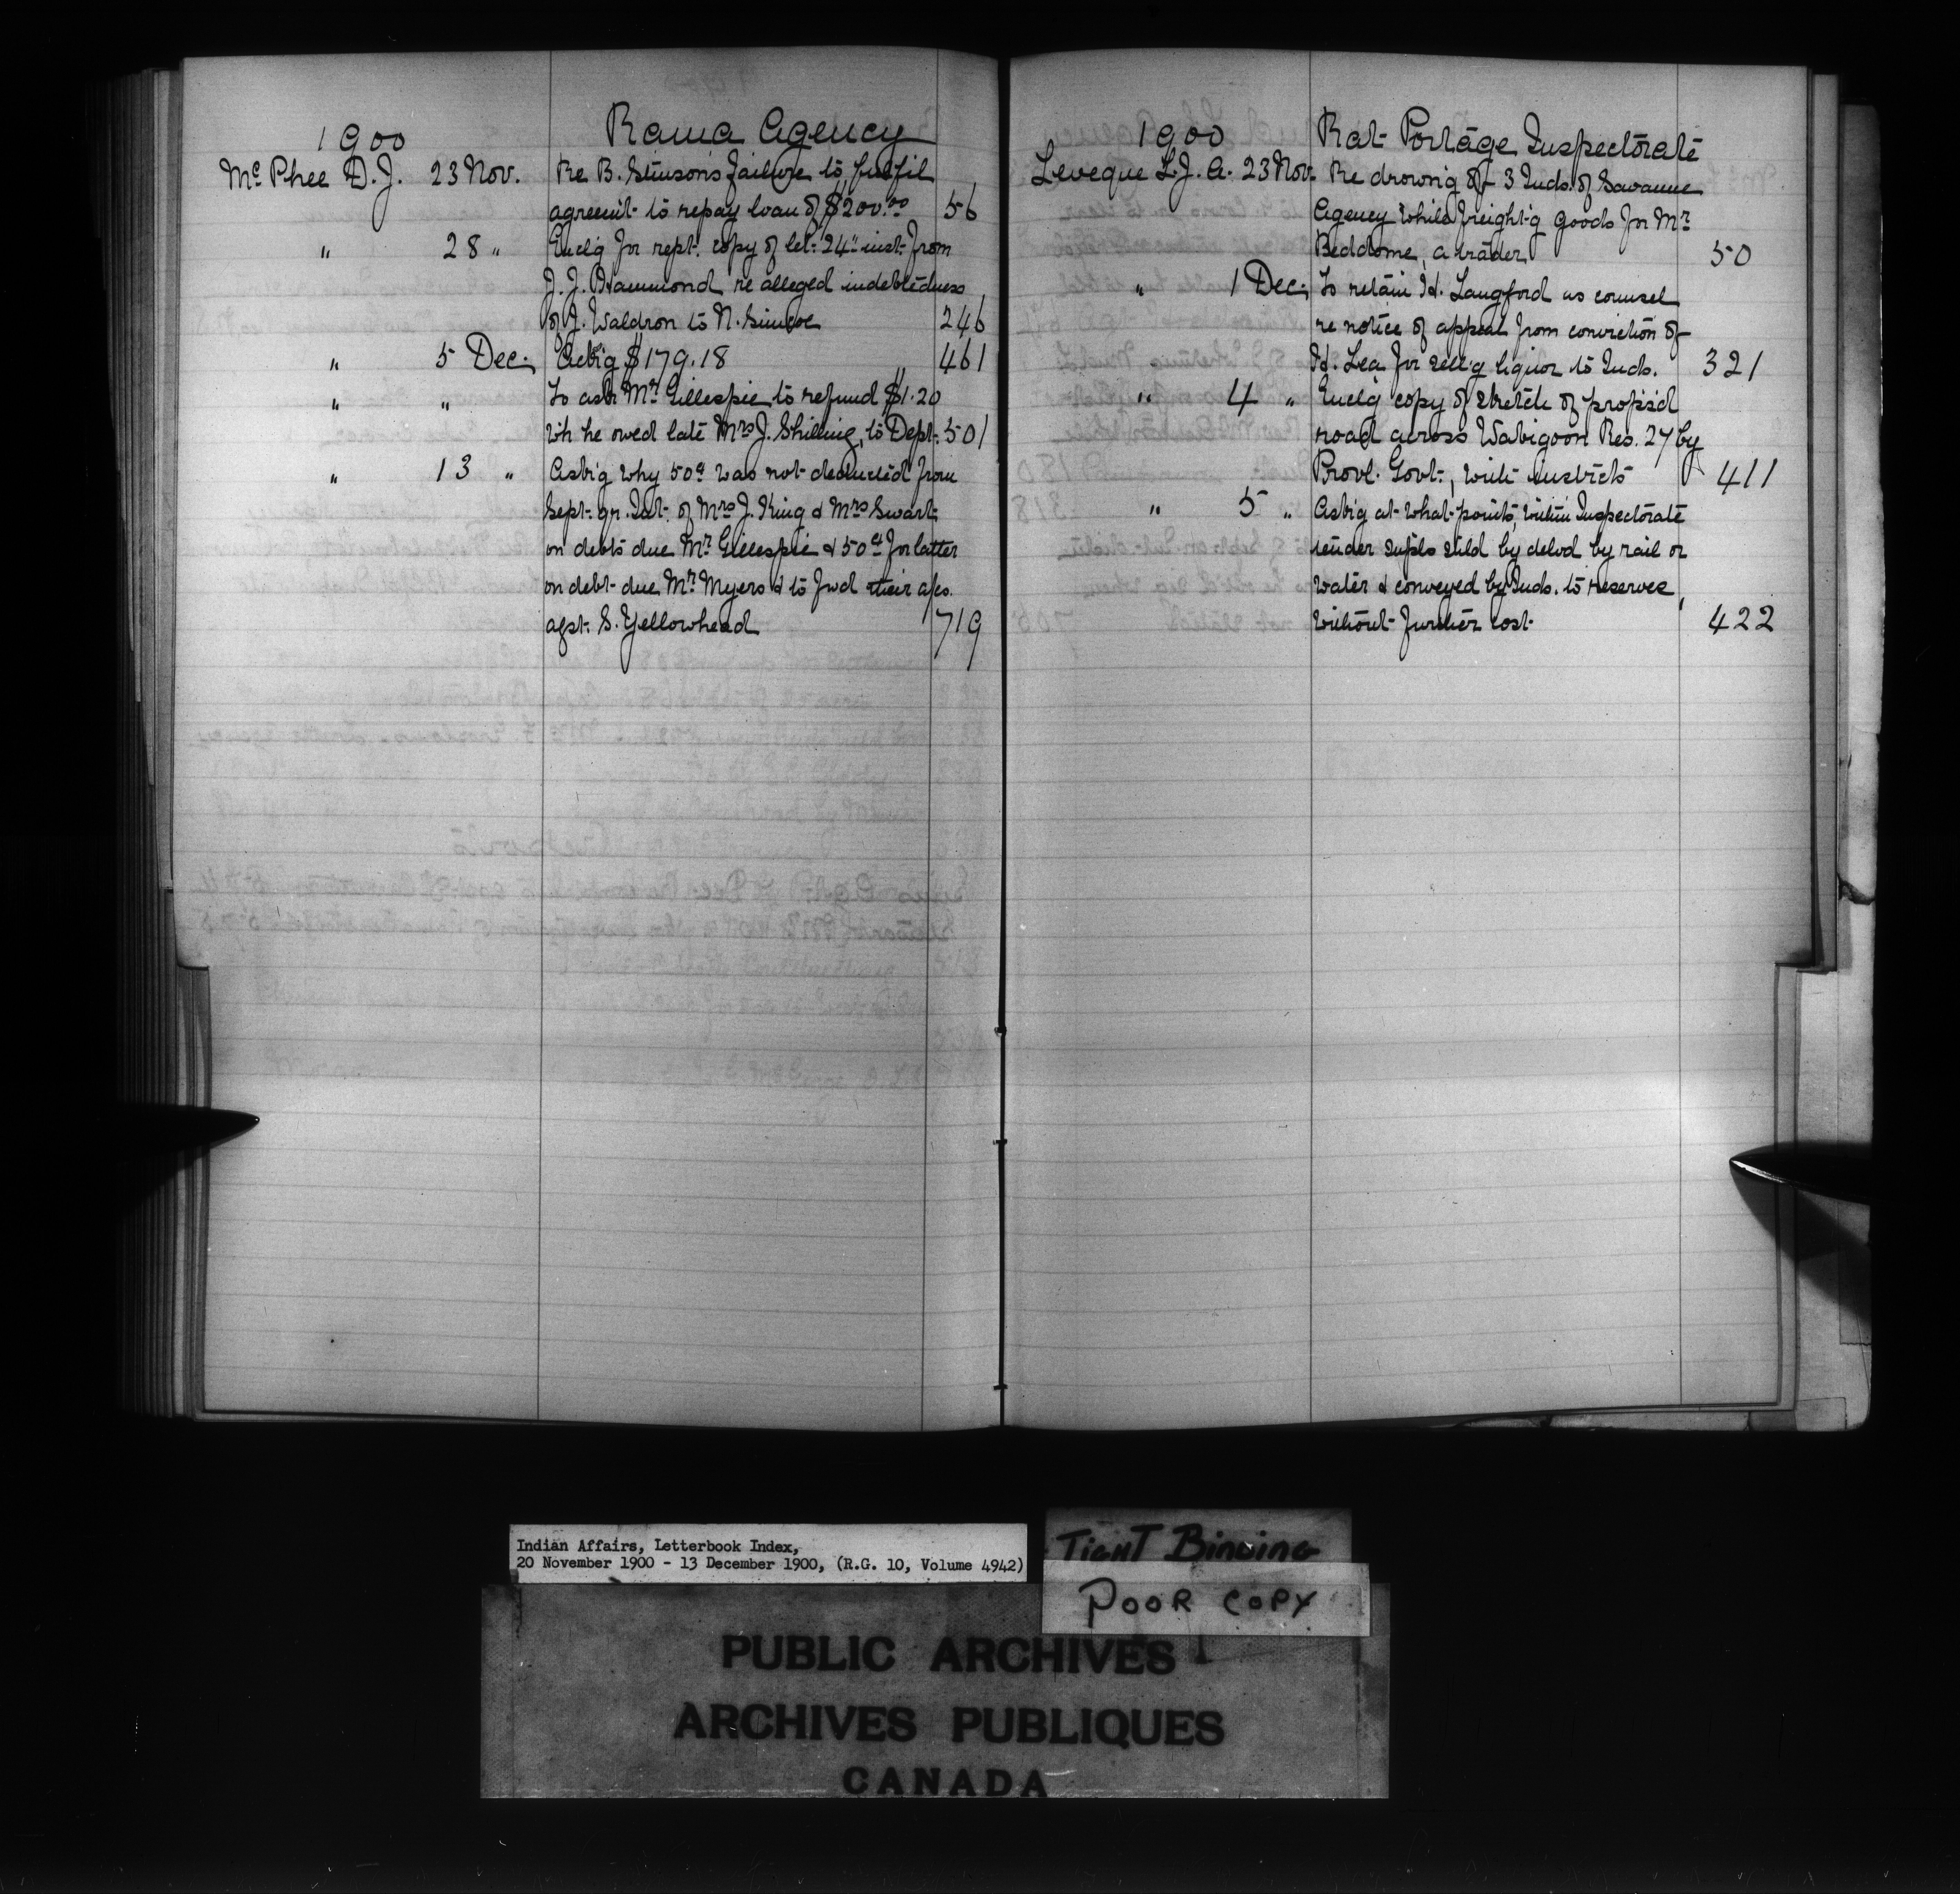 1900 Rama Agency
McPhee D.J. 23 Nov. Re B. Stinson's failure to fulfil
agreemt. to repay loan of $200.00 56
" 28 " Encl'g for rept. copy of let. 24" inst. from
J. J. Hammond re alleged indebtedness
of J. Waldron to N. Simcoe 246
" 5 Dec. Ackg $179.18 461
" " To ask Mr. Gillespie to refund $1.20
wh he owed late Mrs J. Shilling, to Dept. 501
" 13 " Askg why 50c was not deducted from
Sept. qr. Int. of Mrs J. King & Mrs Swart
on debts due Mr. Gillespie & 50c for latter
on debt due Mr. Myers & to fwd their a/cs.
agst. S. Yellowhead 719
1900 Rat Portage Inspectorate
Leveque L.J.A. 23 Nov. Re drown'g of 3 Inds. of Savanne
Agency while freight'g goods for Mr.
Beddome, a trader 50
" 1 Dec. To retain H. Langford as counsel
re notice of appeal from conviction of
H. Lea for sell'g liquor to Inds. 321
" 4 " Encl'g copy of sketch of propos'd
road across Wabigoon Res. 27 by
Provl. Govt., with instrcts 411
" 5 " Ask'g at what points, within Inspectorate
tender supls shld be delvd by rail or
water & conveyed by Inds. to reserves,
without further cost 422
Indian Affairs, Letterbook Index,
20 November 1900 - 13 December 1900, (R.G. 10, Volume 4942)
TIGHT BINDING
POOR COPY
PUBLIC ARCHIVES
ARCHIVES PUBLIQUES
CANADA